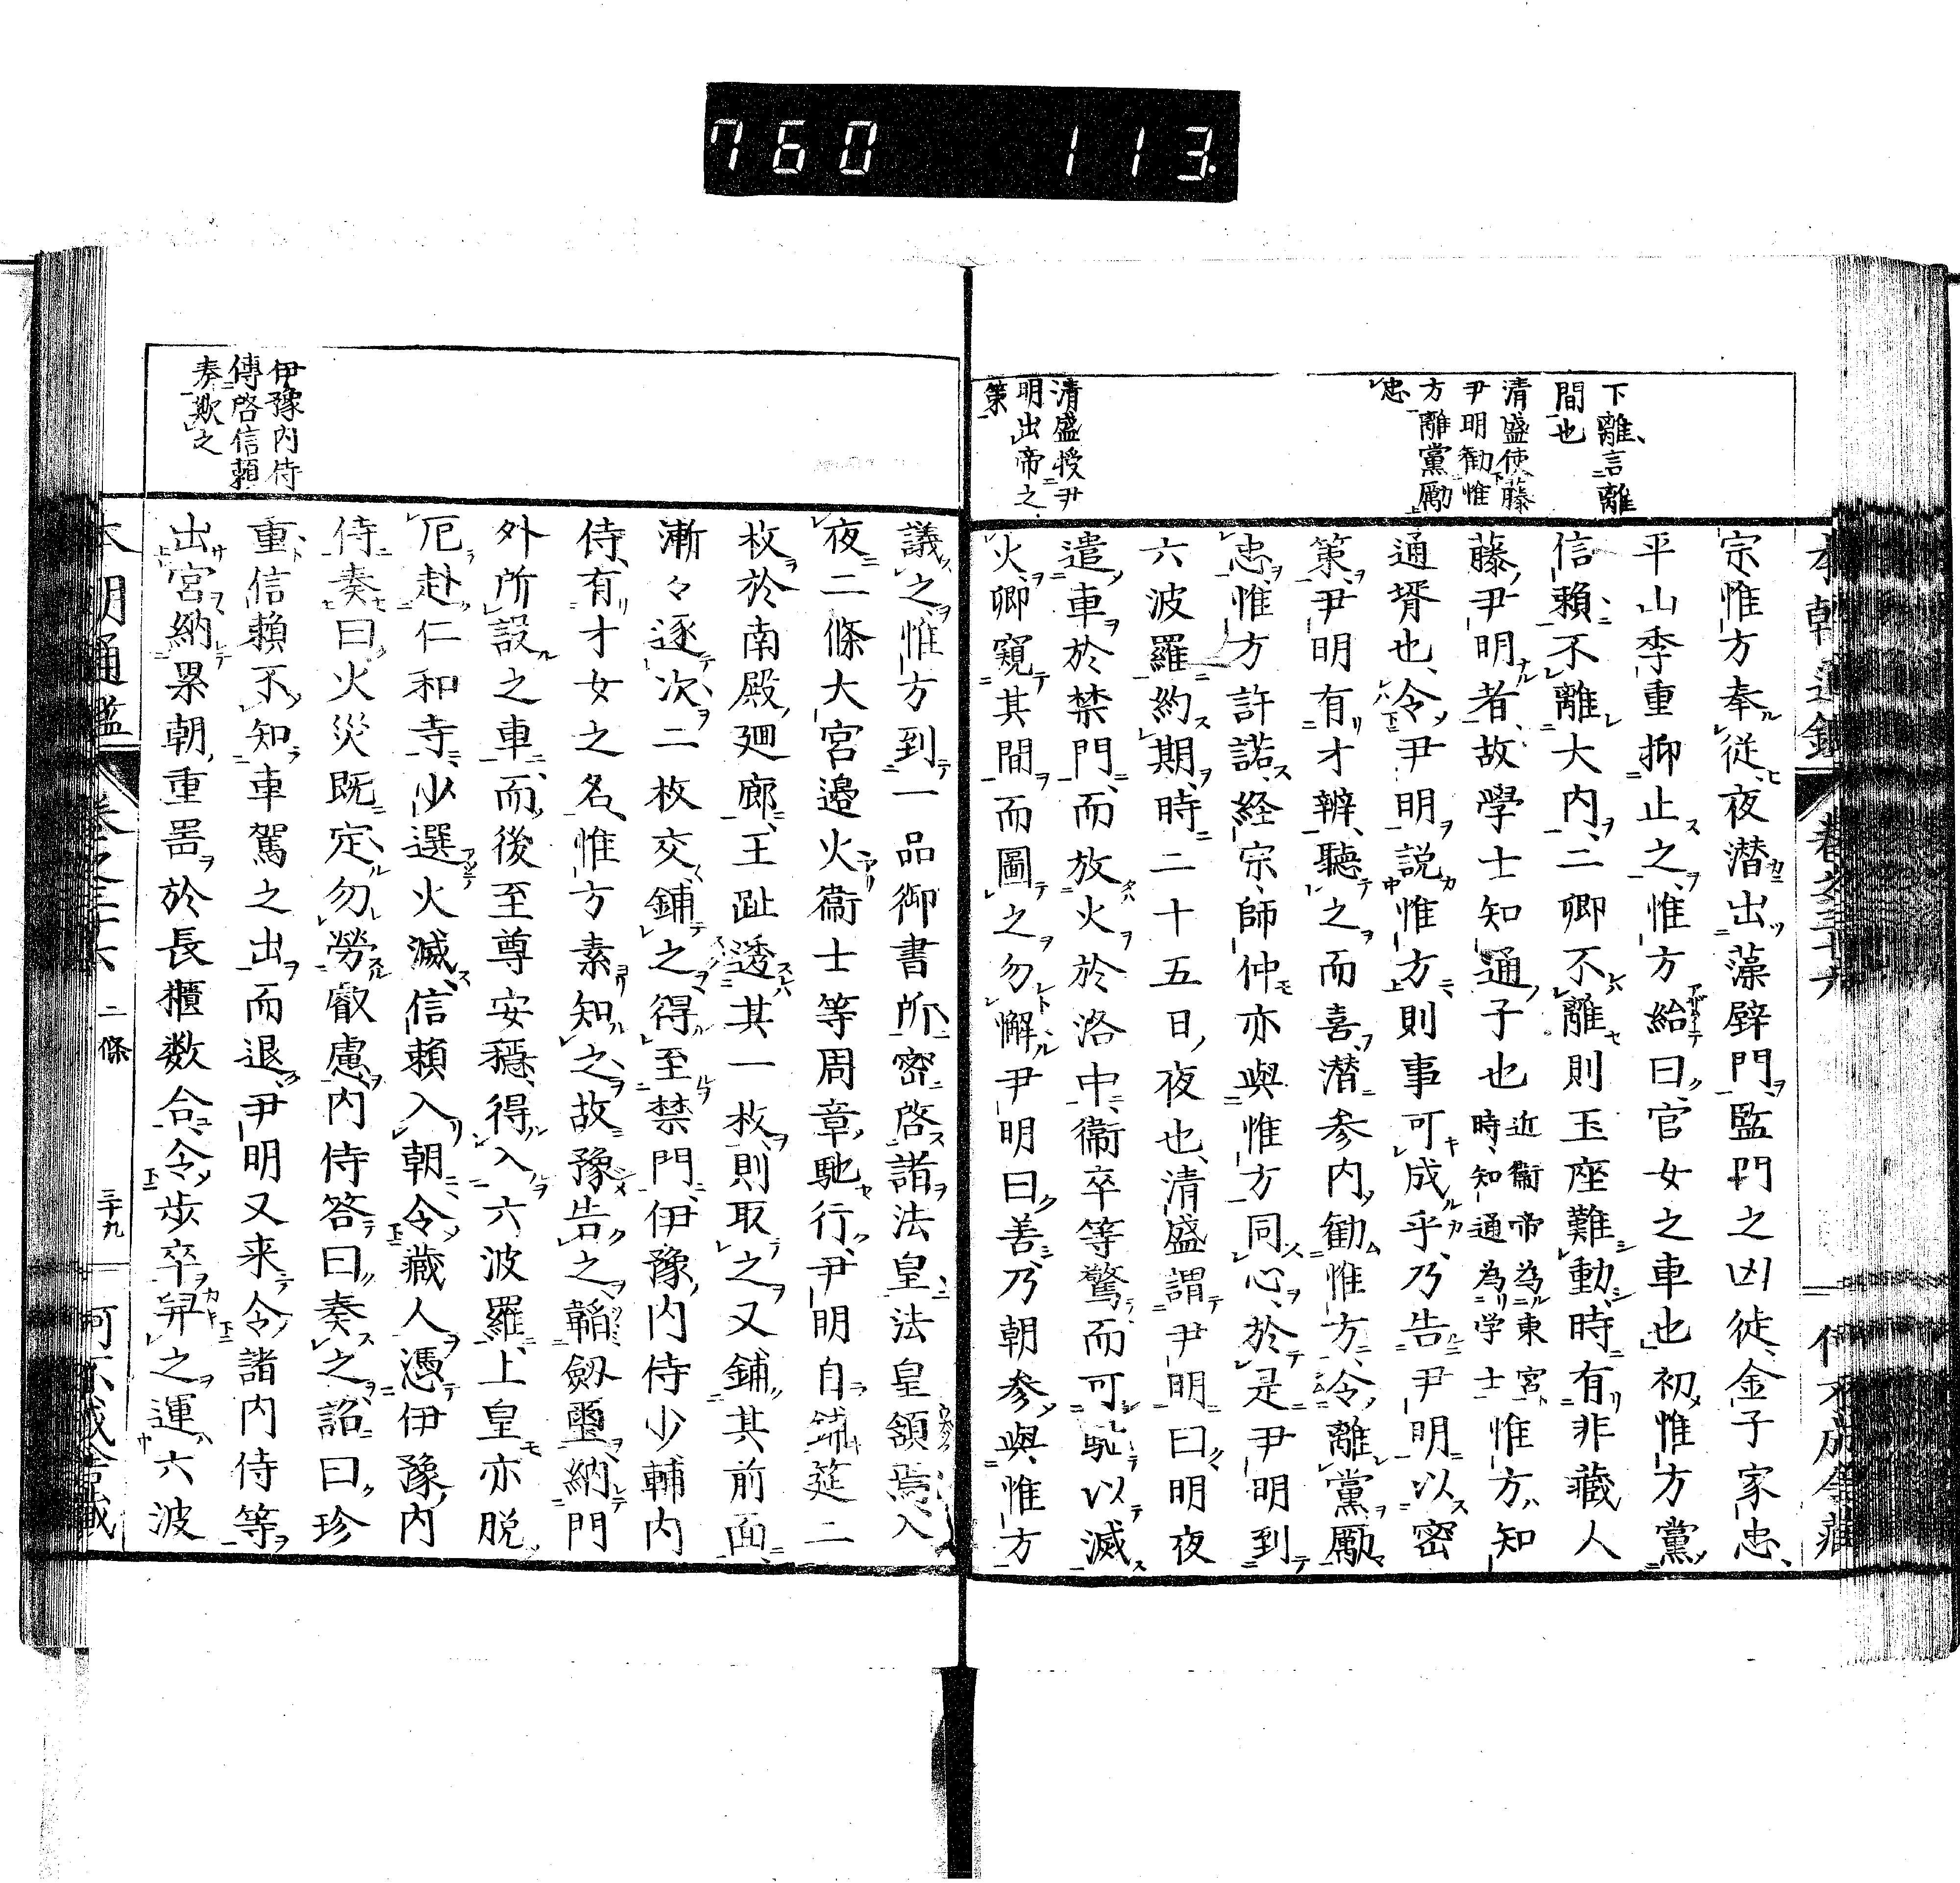 760 113.
下離、言離
間也
清盛使藤
尹明勸惟
方離黨勵
忠
清盛授尹
明出帝之
策
宗惟方奉從、夜潜出藻壁門、監門之凶徒、金子家忠、
平山季重抑止之、惟方紿曰、官女之車也、初惟方黨
信賴、不離大内、二卿不離則玉座難動、時有非藏人
藤尹明者、故學士知通子也近衞帝為東宮時、知通為学士惟方、知
通壻也、令尹明説惟方則事可成乎、乃告尹明以密
策、尹明有才辨、聽之而喜、潜参内、勸惟方、令離黨勵
忠、惟方許諾、経宗、師仲亦與惟方同心、於是尹明到
六波羅約期、時二十五日夜也、清盛謂尹明曰、明夜
遣車於禁門、而放火於洛中、衞卒等驚而可馳以滅
火、卿窺其間而圖之勿懈、尹明曰、善、乃朝参、與惟方
伊豫内侍
傳啓信賴
奏欺之
議之、惟方到一品御書所、密啓諸法皇、法皇頷焉、入
夜二條大宮邉火、衞士等周章馳行、尹明自鋪筵二
枚於南殿廻廊、王趾透其一枚、則取之、又鋪其前面、
漸々逐次二枚交鋪之、得至禁門、伊豫内侍少輔内
侍、有才女之名、惟方素知之、故豫告之、韜劔璽、納門
外所設之車、而後至尊安穩、得入六波羅、上皇亦脱
厄赴仁和寺、少選火滅、信賴入朝、令藏人憑伊豫内
侍奏曰、火災既定、勿勞叡慮、内侍答曰、奏之、詔曰、珍
重、信賴不知車駕之出而退、尹明又来、令諸内侍等
出宮、納累朝重噐於長櫃数合、令歩卒舁之運六波
本朝通鑑 二條 三十九